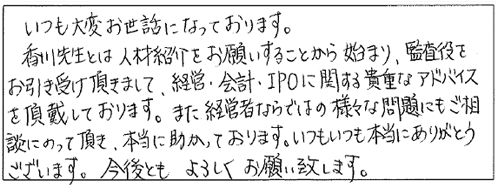 いつも大変お世話になっております。
香川先生とは人材紹介をお願いすることから始まり、監査役を
お引き受け頂きまして、経営・会計・IPOに関する貴重なアドバイス
を頂戴しております。また経営者ならではの様々な問題にもご相
談にのって頂き、本当に助かっております。いつもいつも本当にありがとう
ございます。今後とも よろしく お願い致します。